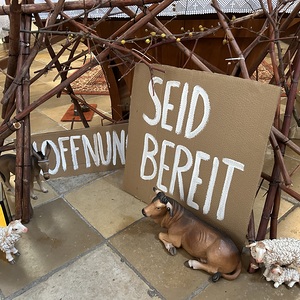 SEID
BEREIT
HOFFNUNG